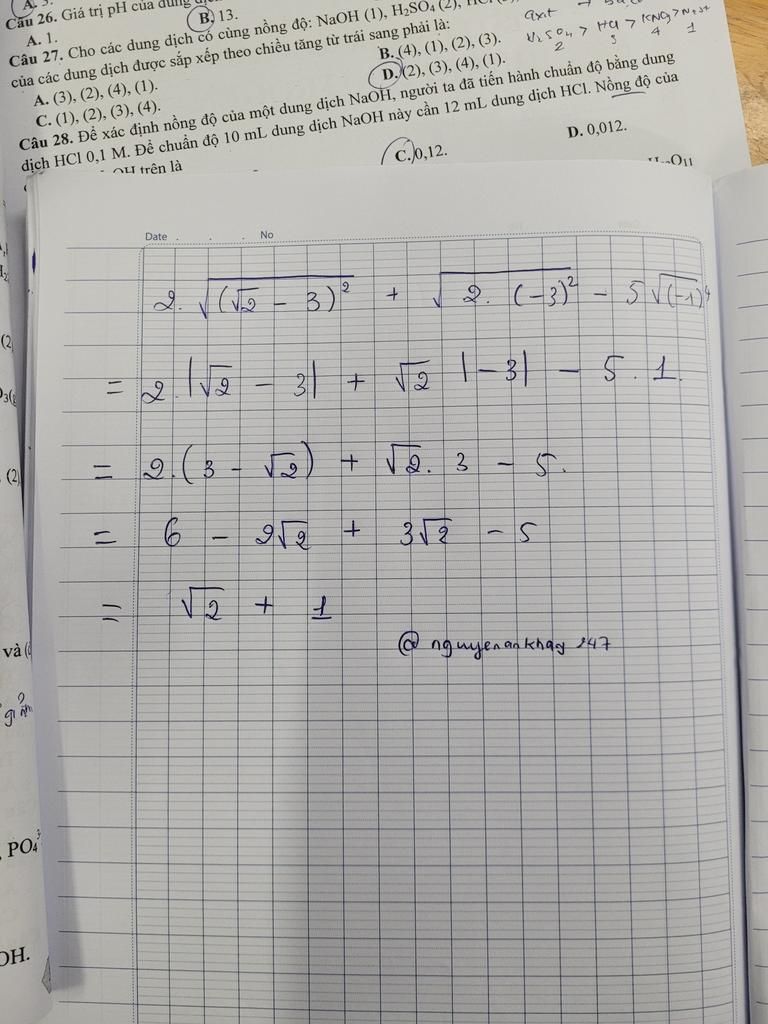 A. 3.
Câu 26. Giá trị pH của dung dị
A. 1.
B. 13.
Câu 27. Cho các dung dịch có cùng nồng độ: NaOH (1), H₂SO₄ (2), HCl
của các dung dịch được sắp xếp theo chiều tăng từ trái sang phải là:
A. (3), (2), (4), (1).
B. (4), (1), (2), (3).
C. (1), (2), (3), (4).
D. (2), (3), (4), (1).
axit →
H₂SO₄ > HCl > KNO₃ >
2 3 4 1
Câu 28. Để xác định nồng độ của một dung dịch NaOH, người ta đã tiến hành chuẩn độ bằng dung
dịch HCl 0,1 M. Để chuẩn độ 10 mL dung dịch NaOH này cần 12 mL dung dịch HCl. Nồng độ của
OH trên là
C. 0,12.
D. 0,012.
Date . . . No
2.√(√2 - 3)² + √2. (-3)² - 5√(-1)⁴
= 2.|√2 - 3| + √2 |-3| - 5 . 1.
= 2.(3 - √2) + √2. 3 - 5.
= 6 - 2√2 + 3√2 - 5
= √2 + 1
@nguyenankhay247
(2)
và
PO₄³
OH.